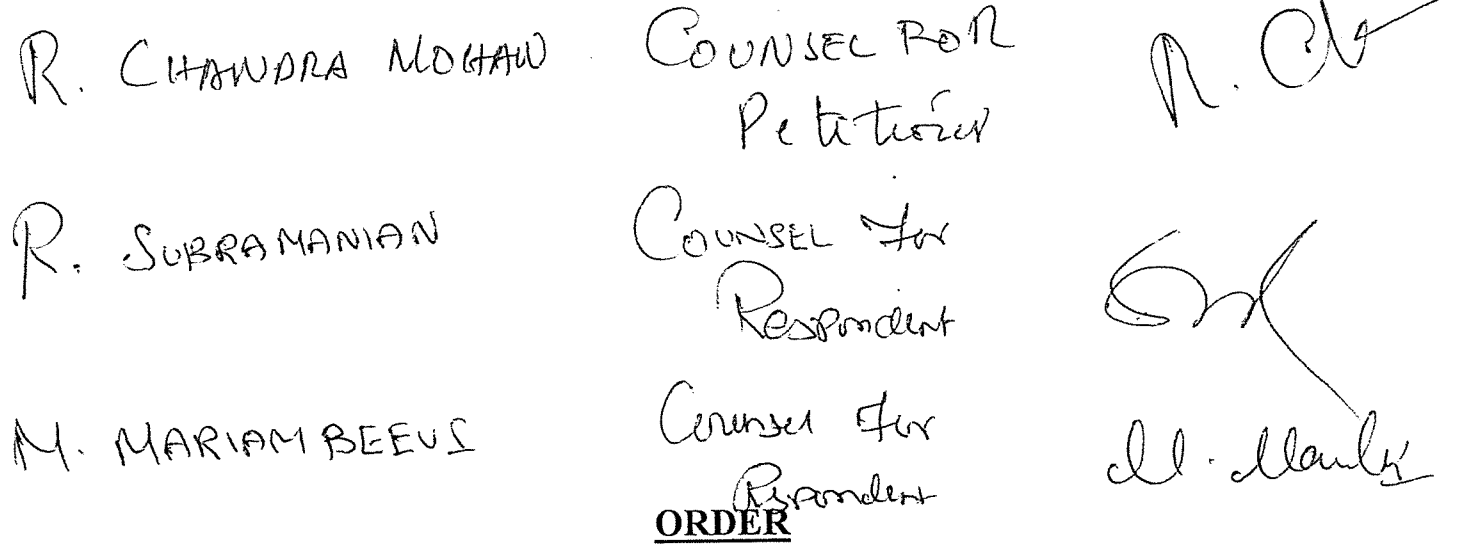 R. CHANDRA MOHAN COUNSEL FOR Petitioner R. Ch
R. SUBRAMANIAN COUNSEL For Respondent
M. MARIAM BEEVI Counsel For Respondent M.
ORDER